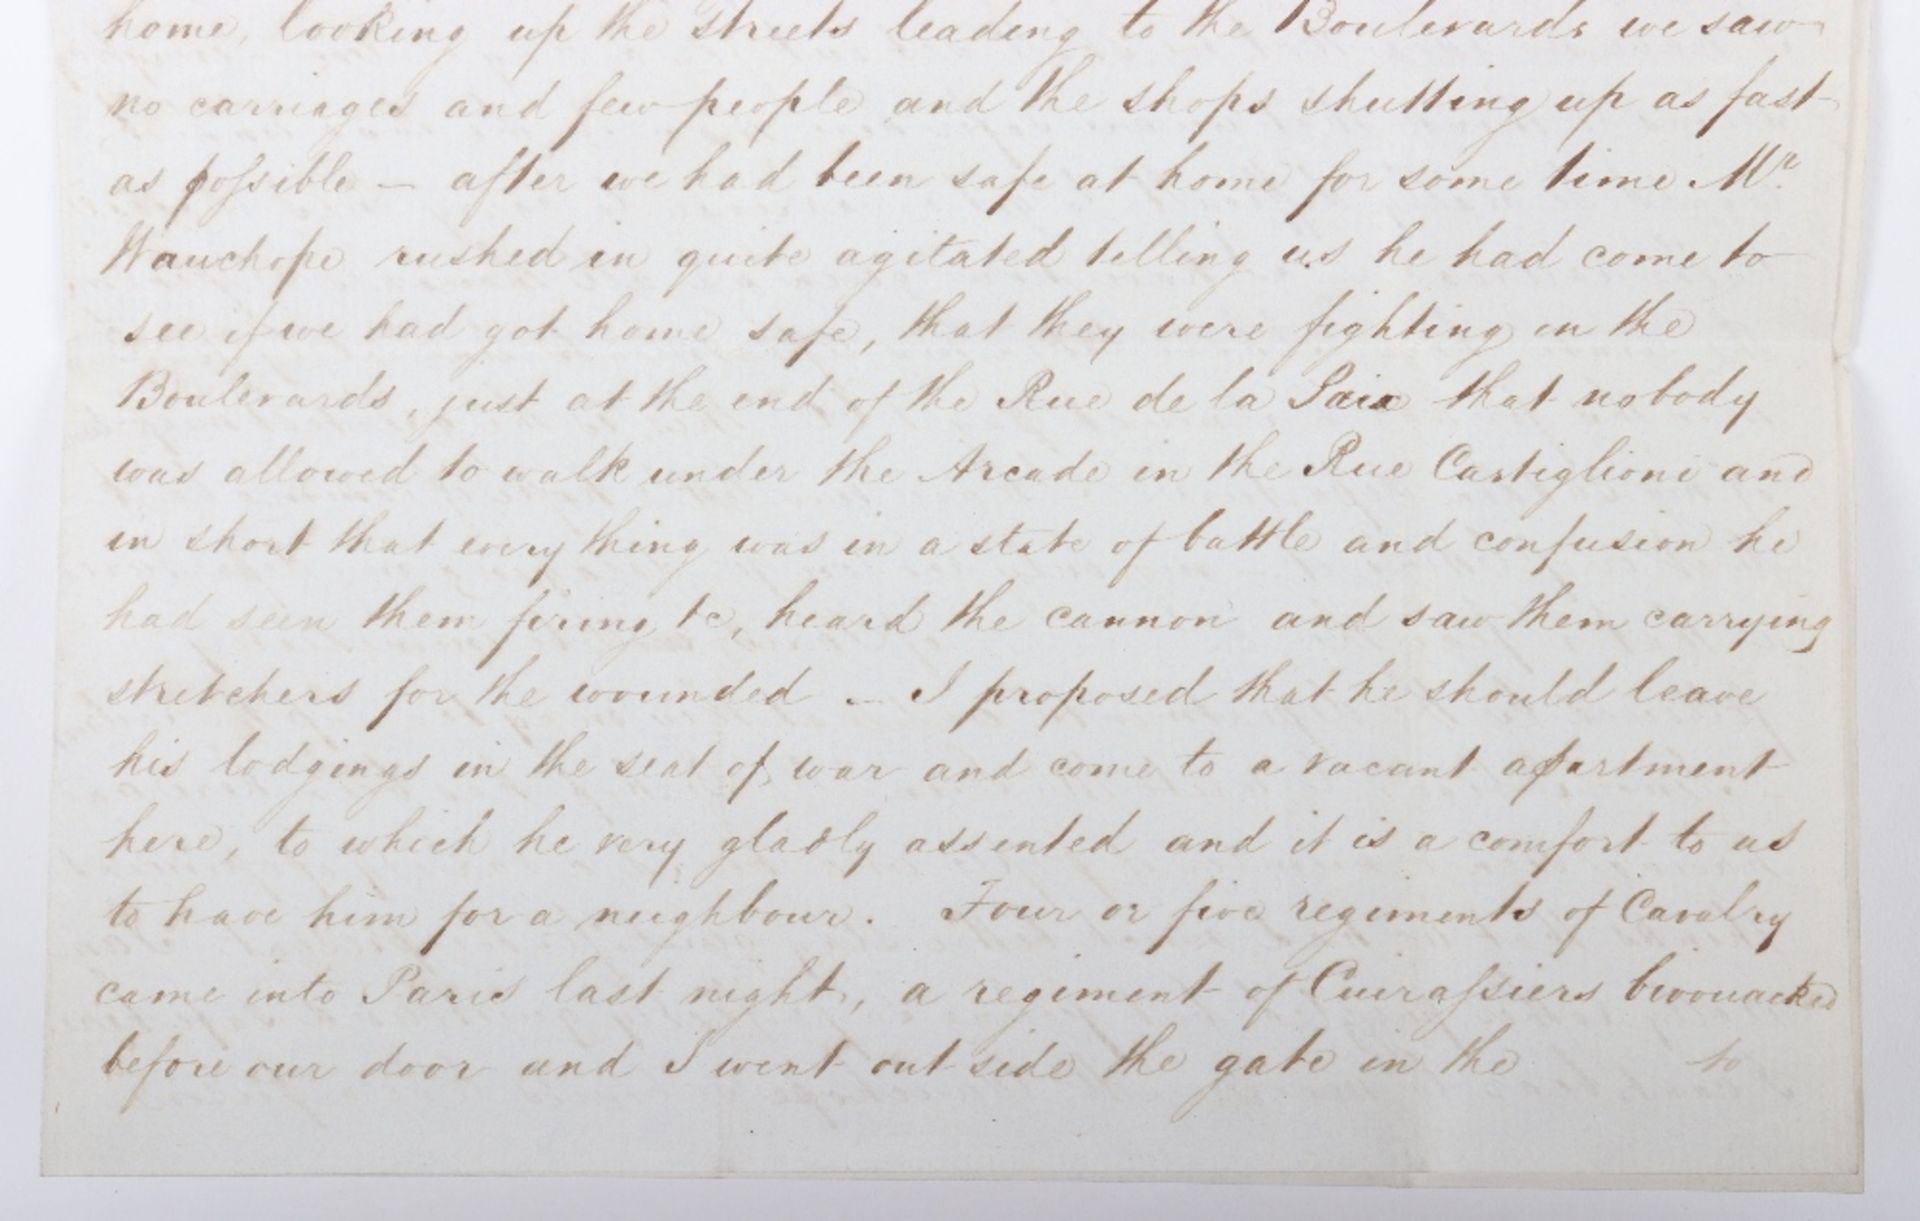 home, looking up the streets leading to the Boulevards we saw
no carriages and few people and the shops shutting up as fast
as poſsible — after we had been safe at home for some time Mr.
Wauchope rushed in quite agitated telling us he had come to
see if we had got home safe, that they were fighting on the
Boulevards, just at the end of the Rue de la Paix that nobody
was allowed to walk under the Arcade in the Rue Castiglione and
in short that every thing was in a state of battle and confusion he
had seen them firing &c, heard the cannon and saw them carrying
stretchers for the wounded — I proposed that he should leave
his lodgings in the seat of war and come to a vacant apartment
here, to which he very gladly assented and it is a comfort to us
to have him for a neighbour. Four or five regiments of Cavalry
came into Paris last night, a regiment of Cuiraſsiers bivouacked
before our door and I went out side the gate in the to